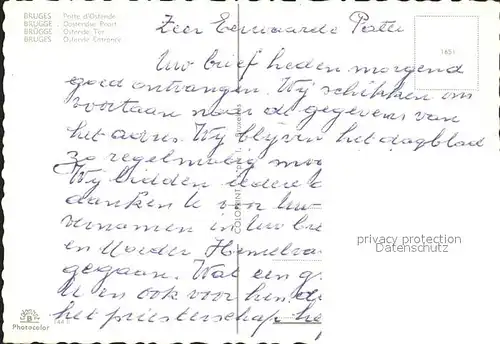 BRUGES Porte d'Ostende
BRUGGE Oostendse Poort
BRÜGGE Ostende Tor
BRUGES Ostende Entrance
Zeer Eerwaarde Pater
Uw brief heden morgend
goed ontvangen. Wij schikken om
voortaan naar de gegevens van
het adres. Wij blijven het dagblad
zo regelmatig
Wij bidden iedere
danken U voor Uw
vernomen in Uw
en Moeder
gegaan. Wat een
U en ook voor hen die
het priesterschap
1651
COLORPRINT
privacy protection
Datenschutz
Photocolor